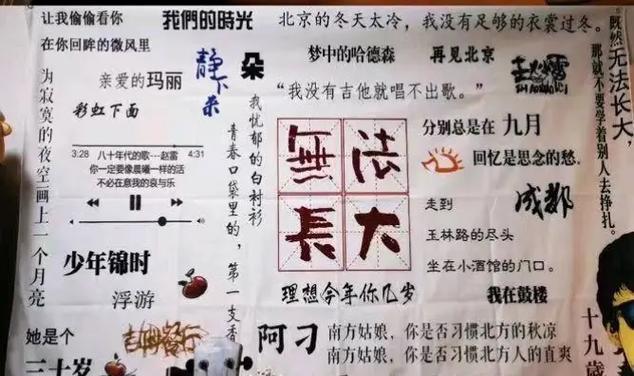 让我偷偷看你
在你回眸的微风里
我們的時光
北京的冬天太冷，我没有足够的衣裳过冬。
既然无法长大，
那就不要学着别人去挣扎。
静下来
朵
梦中的哈德森
再见北京
赵雷
为寂寞的夜空画上一个月亮
亲爱的玛丽
彩虹下面
我忧郁的白衬衫
青春口袋里的，第一支香
“我没有吉他就唱不出歌。”
分别总是在 九月
回忆是思念的愁。
無法
長大
3:28 八十年代的歌---赵雷 4:31
你一定要像晨曦一样的活
不必在意我的哀与乐
走到
成都
玉林路的尽头
坐在小酒馆的门口。
少年锦时
浮游
理想今年你几岁
我在鼓楼
她是个
三十岁
吉姆餐厅
阿刁
南方姑娘，你是否习惯北方的秋凉
南方姑娘，你是否习惯北方人的直爽
十九歲